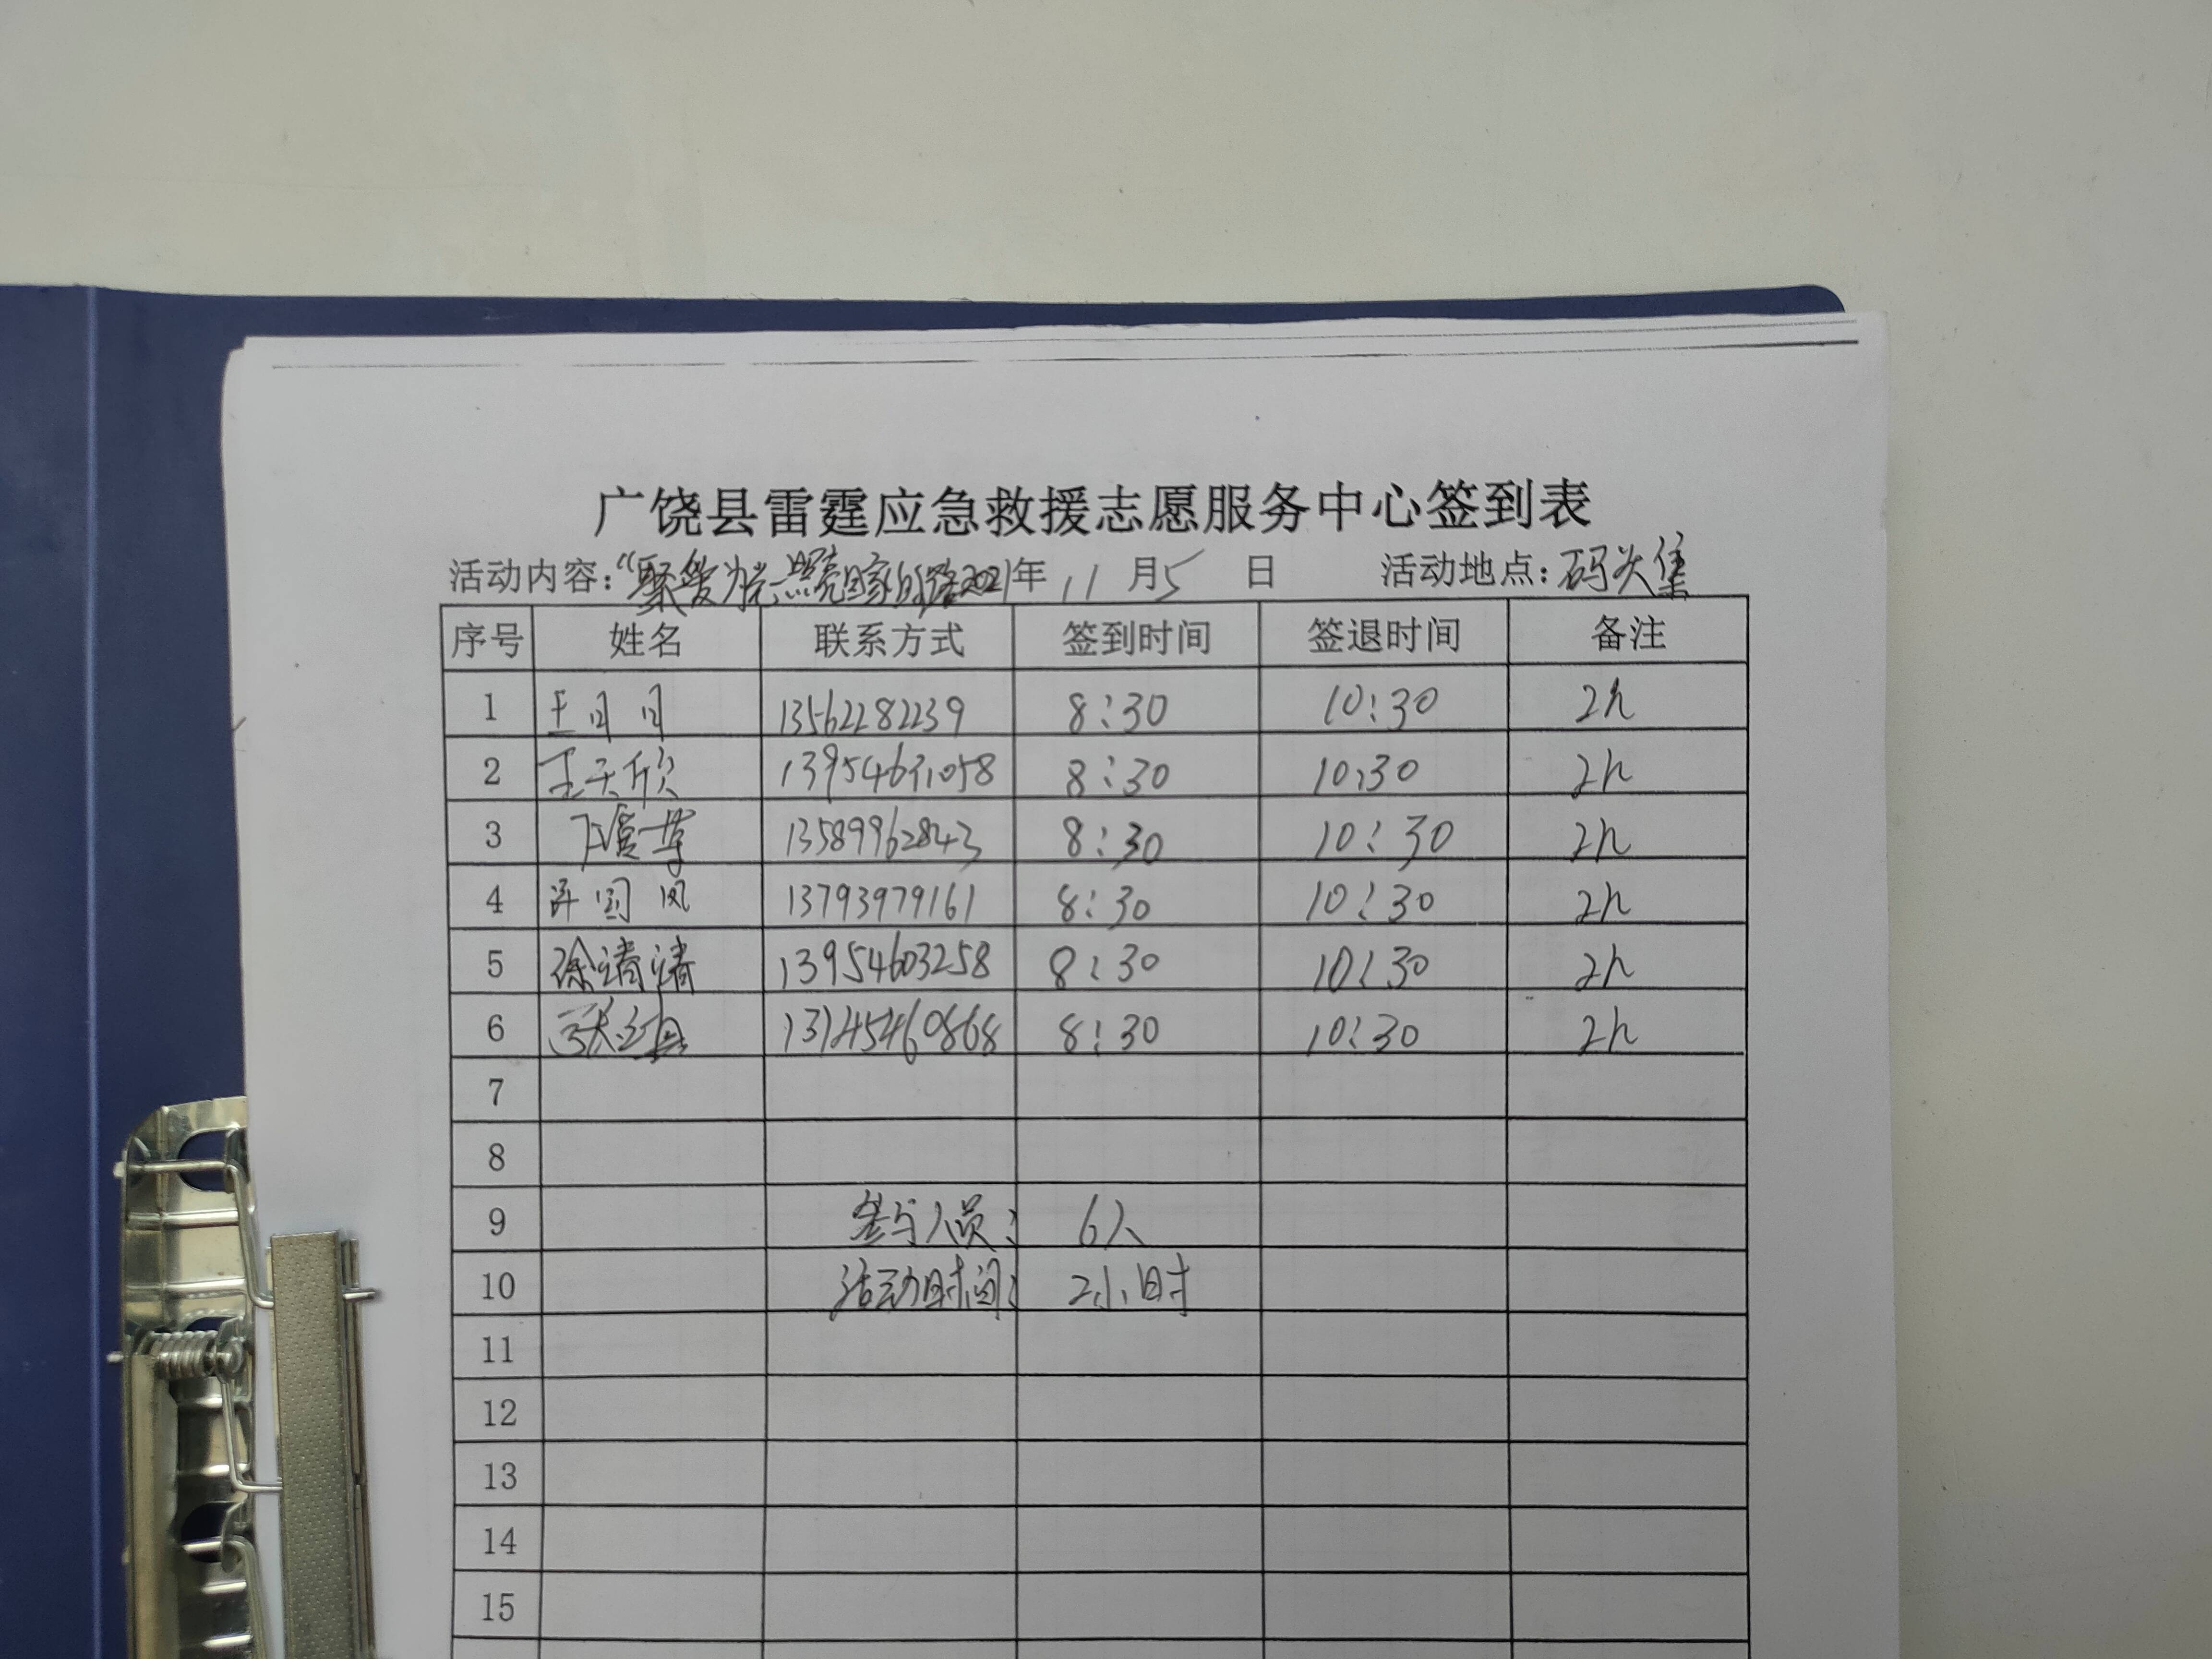 广饶县雷霆应急救援志愿服务中心签到表
活动内容：“聚爱为光 照亮回家的路 2021年 11 月 5 日 活动地点：码头集
序号 姓名 联系方式 签到时间 签退时间 备注
1 王月月 13562282239 8:30 10:30 2h
2 王天欣 13954631058 8:30 10:30 2h
3 13589962843 8:30 10:30 2h
4 许国风 13793979161 8:30 10:30 2h
5 徐清清 13954603258 8:30 10:30 2h
6 8:30 10:30 2h
7
8
9 参与人员： 6人
10 活动时间： 2小时
11
12
13
14
15